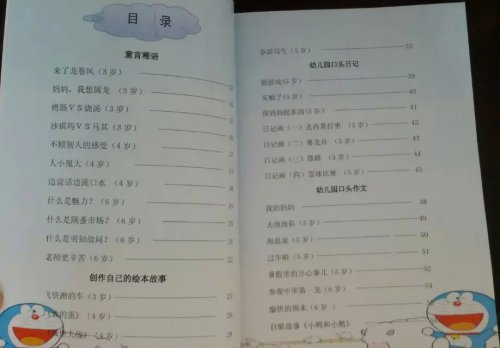 目 录
童言稚语
来了龙卷风（3 岁）
妈妈，我想属龙（3 岁）
烤肠ＶＳ烧汤（3 岁）
沙琪玛ＶＳ马其（3 岁）
不顾别人的感受（4 岁）
人小鬼大（4 岁）
边说话边流口水（4 岁）
什么是魅力？（6 岁）
什么是跳蚤市场？（6 岁）
什么是明知故问？（6 岁）
老师更辛苦（6 岁）
创作自己的绘本故事
飞快跑的车（3 岁）
的蛋》（4 岁）
大战》（4 岁）
春游写生（5 岁） 32
幼儿园口头日记
做游戏(5 岁) 39
买柚子(5 岁) 40
帮妈妈提东西(5 岁) 41
日记画（一）去内黄打枣（5 岁） 42
日记画（二）赛龙舟（5 岁）
日记画（三）修路（5 岁）
日记画（四）篮球比赛（5 岁） 45
幼儿园口头作文
我的妈妈 48
去泡泡彩（5 岁） 49
泡温泉（5 岁） 50
过年啦（5 岁） 51
暑假里的开心事儿（5 岁） 52
参观中华第一龙（6 岁） 54
愉快的周末（6 岁）
自编故事《小鸭和小鹅》